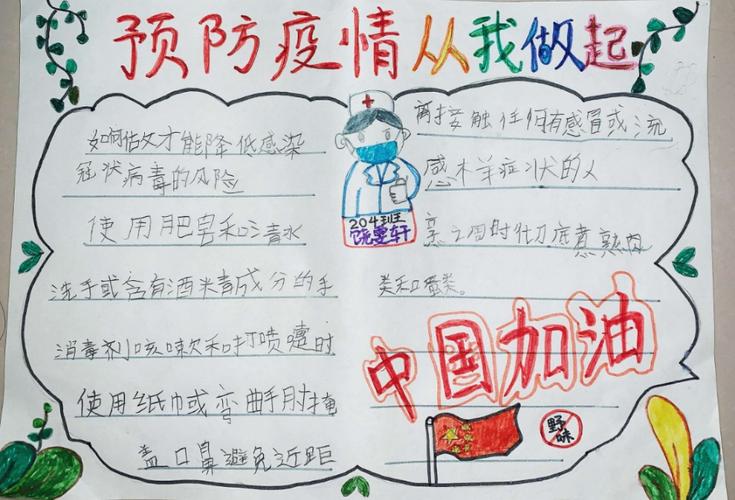 预防疫情从我做起
如何估文才能降低感染
冠状病毒的风险
使用肥皂和清水
洗手或含有酒米青成分的手
消毒剂咳嗽次和打喷嚏时
使用纸巾或弯曲手肘掩
盖口鼻避免近距
离接触任何有感冒或流
感木羊症状的人
204班
饶雯轩
烹之四时仕刀底煮熟肉
类和口蛋类。
中国加油
野味